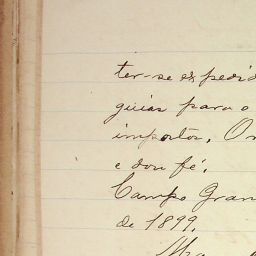 ter-se os pedid
guias para o
impostos. O r
e dou fé.
Campo Gran
de 1899.